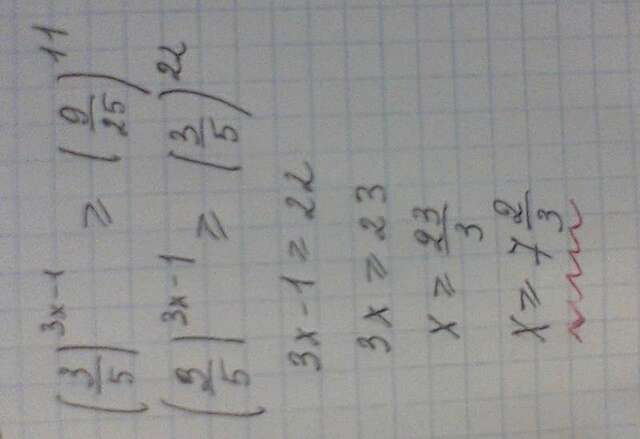 (3/5)^(3x-1) ≥ (9/25)^11
(3/5)^(3x-1) ≥ (3/5)^22
3x-1 ≥ 22
3x ≥ 23
x ≥ 23/3
x ≥ 7 2/3